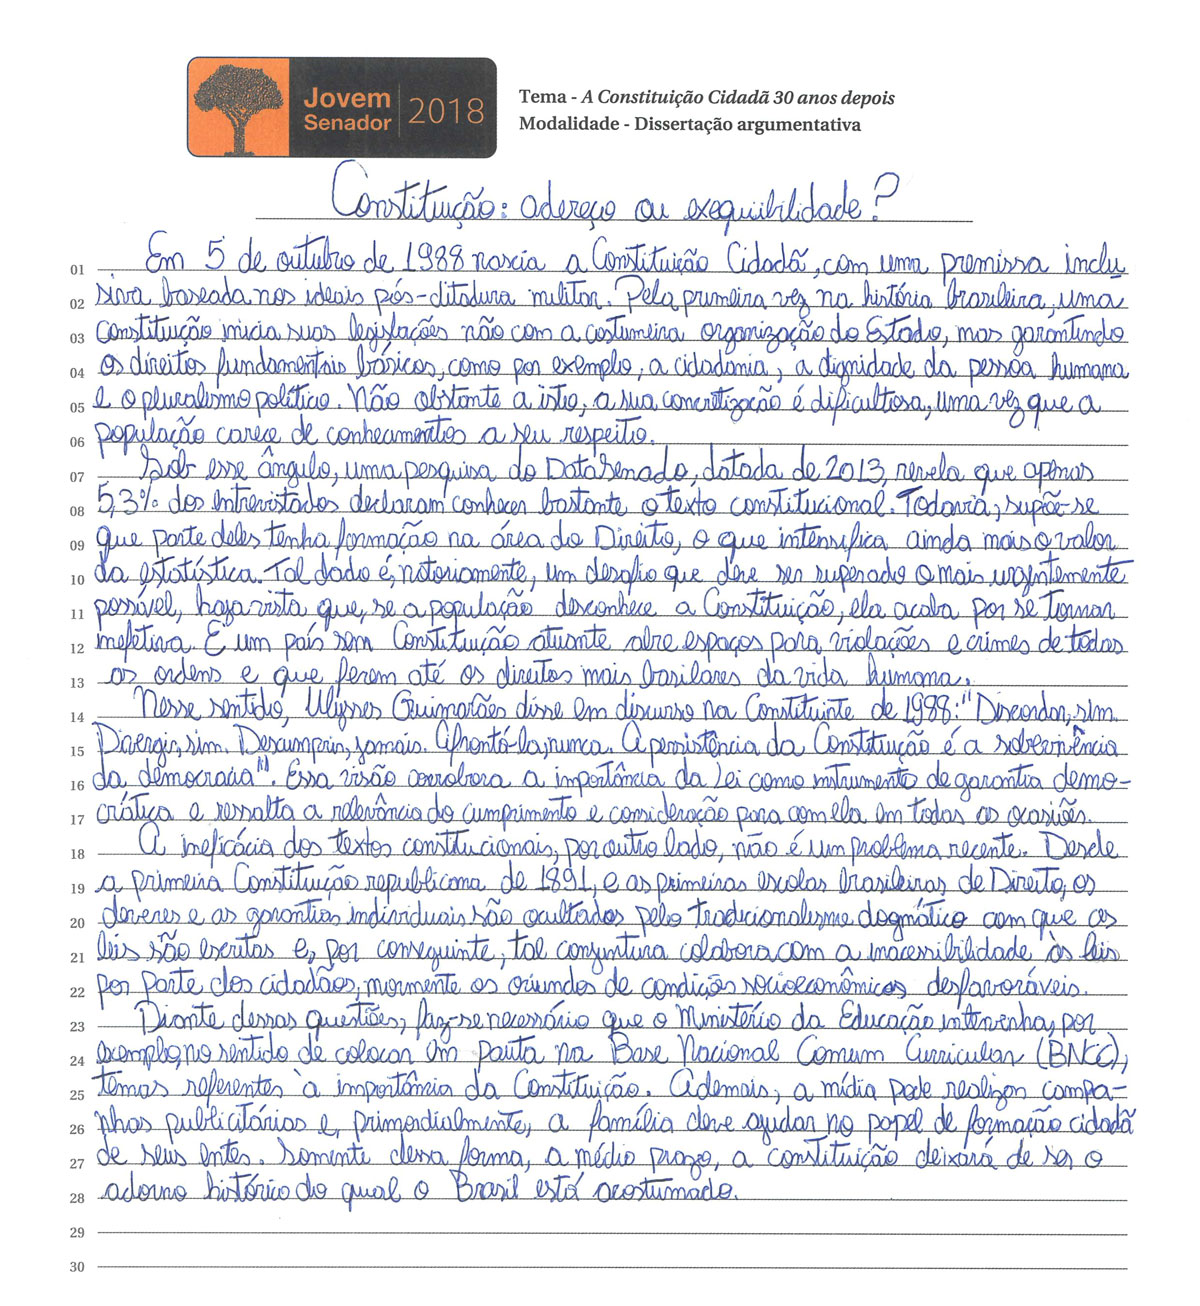 Jovem
Senador
2018
Tema - A Constituição Cidadã 30 anos depois
Modalidade - Dissertação argumentativa
Constituição: adereço ou exequibilidade?
01 Em 5 de outubro de 1988 nascia a Constituição Cidadã, com uma premissa inclu
02 siva baseada nos ideais pós-ditadura militar. Pela primeira vez na história brasileira, uma
03 constituição inicia suas legislações não com a costumeira organização do Estado, mas garantindo
04 os direitos fundamentais básicos, como por exemplo, a cidadania, a dignidade da pessoa humana
05 e o pluralismo político. Não obstante a isto, a sua concretização é dificultosa, uma vez que a
06 população carece de conhecimentos a seu respeito.
07 Sob esse ângulo, uma pesquisa do DataSenado, datada de 2013, revela que apenas
08 5,3% dos entrevistados declaram conhecer bastante o texto constitucional. Todavia, supõe-se
09 que parte deles tenha formação na área do Direito, o que intensifica ainda mais o valor
10 da estatística. Tal dado é, notoriamente, um desafio que deve ser superado o mais urgentemente
11 possível, haja vista que, se a população desconhece a Constituição, ela acaba por se tornar
12 inefetiva. E um país sem Constituição atuante abre espaços para violações e crimes de todas
13 as ordens e que ferem até os direitos mais basilares da vida humana.
14 Nesse sentido, Ulysses Guimarães disse em discurso na Constituinte de 1988: "Discordar, sim.
15 Divergir, sim. Descumprir, jamais. Afrontá-la, nunca. A persistência da Constituição é a sobrevivência
16 da democracia". Essa visão corrobora a importância da Lei como instrumento de garantia demo-
17 crática e ressalta a relevância do cumprimento e consideração para com ela em todas as ocasiões.
18 A ineficácia dos textos constitucionais, por outro lado, não é um problema recente. Desde
19 a primeira Constituição republicana de 1891, e as primeiras escolas brasileiras de Direito, os
20 deveres e as garantias individuais são ocultados pelo tradicionalismo dogmático com que as
21 leis são escritas e, por conseguinte, tal conjuntura colabora com a inacessibilidade às leis
22 por parte dos cidadãos, mormente os oriundos de condições socioeconômicas desfavoráveis.
23 Diante dessas questões, faz-se necessário que o Ministério da Educação intervenha, por
24 exemplo, no sentido de colocar em pauta na Base Nacional Comum Curricular (BNCC),
25 temas referentes à importância da Constituição. Ademais, a mídia pode realizar campa-
26 nhas publicitárias e, primordialmente, a família deve ajudar no papel de formação cidadã
27 de seus entes. Somente dessa forma, a médio prazo, a constituição deixará de ser o
28 adorno histórico do qual o Brasil está acostumado.
29
30